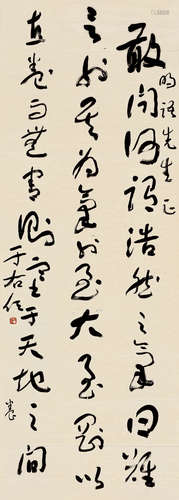 敢問何謂浩然之氣曰難
先生正
言也其為氣也至大至剛以
直養而無害則塞于天地之間
于右任